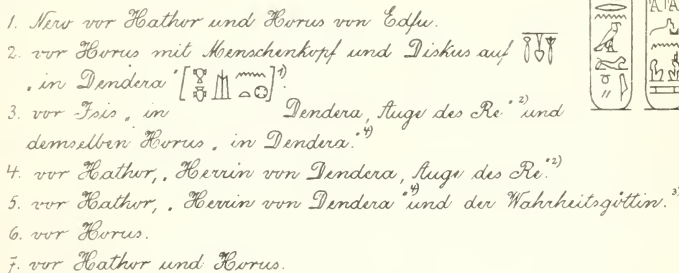 1. Nero vor Hathor und Horus von Edfu.
2. vor Horus mit Menschenkopf und Diskus auf
„in Dendera“ [ ]¹⁾.
3. vor Isis „in Dendera, Auge des Re“²⁾ und
demselben Horus „in Dendera“⁴⁾
4. vor Hathor, „Herrin von Dendera, Auge des Re“²⁾
5. vor Hathor, „Herrin von Dendera“⁴⁾ und der Wahrheitsgöttin.³⁾
6. vor Horus.
7. vor Hathor und Horus.